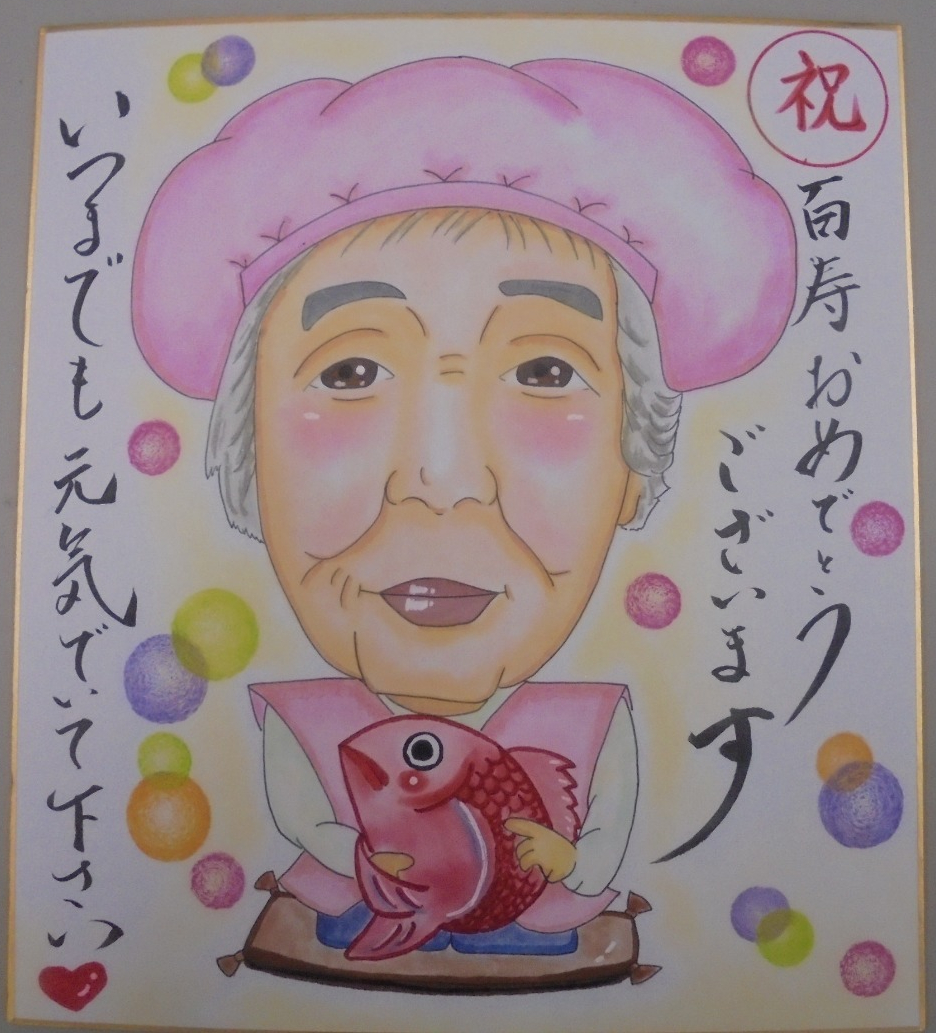 祝
百寿おめでとう
ございます
いつまでも元気でいて下さい